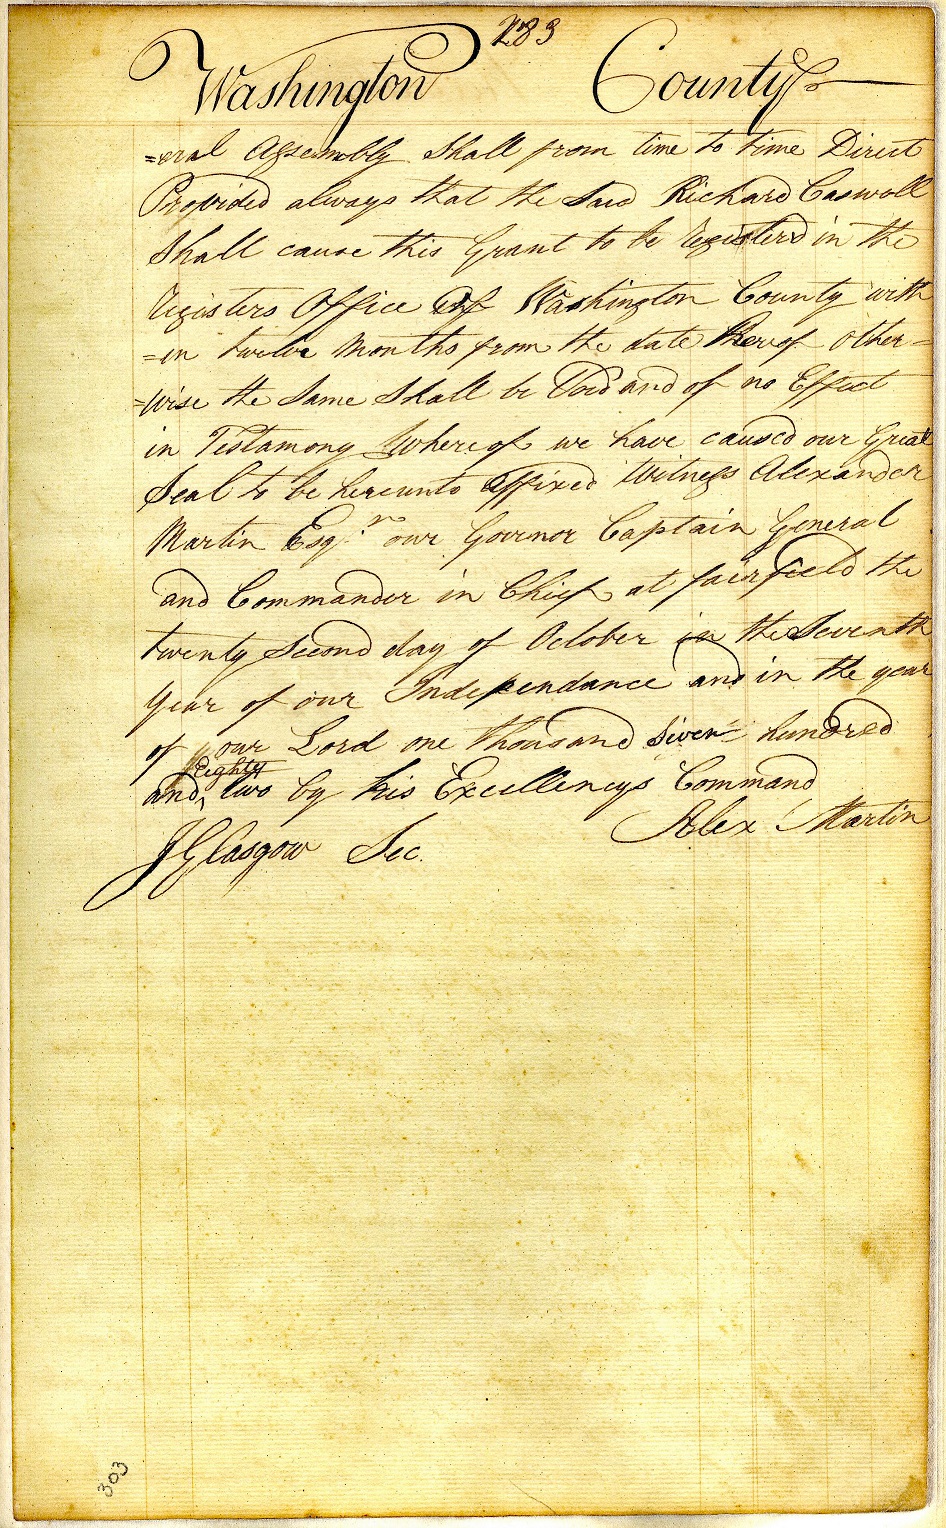 283
Washington County
=eral Assembly Shall from time to time Direct
Provided always that the Said Richard Caswell
Shall cause this Grant to be registerd in the
registers Office Of Washington County with
=in twelve Months from the date thereof other=
=wise the Same Shall be Void and of no Effect
in Testamony Whereof we have caused our Great
Seal to be hereunto Affixed Witness Alexander
Martin Esqr. our Govrnor Captain General
and Commander in Chief at fairfield the
twenty Second day of October in the Seventh
year of our Independance and in the year
of our Lord one thousand Seven hundred
Eighty
and two by his Excellencys Command
Alex Martin
J Glasgow Sec.
303